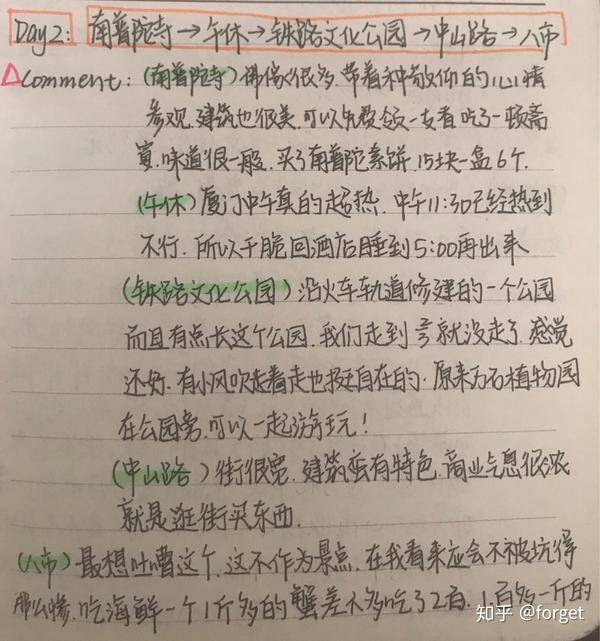 Day2: 南普陀寺→午休→铁路文化公园→中山路→八市
Comment: (南普陀寺)佛像很多.带着种敬仰的心情
参观.建筑也很美.可以免费领一支香吃了一顿斋
宴.味道很一般.买了南普陀素饼.15块一盒6个.
(午休)厦门中午真的超热.中午11:30已经热到
不行.所以干脆回酒店睡到5:00再出来
(铁路文化公园)沿火车轨道修建的一个公园
而且有点长这个公园.我们走到就没走了.感觉
还好.有小风吹走着走也挺自在的.原来万石植物园
在公园旁.可以一起游玩!
(中山路)街很宽.建筑蛮有特色.商业气息很浓
就是逛街买东西.
(八市)最想吐嘈这个.这不作为景点.在我看来应会不被坑得
那么惨.吃海鲜一个1斤多的蟹差不多吃了2百.1百多一斤的
知乎 @forget